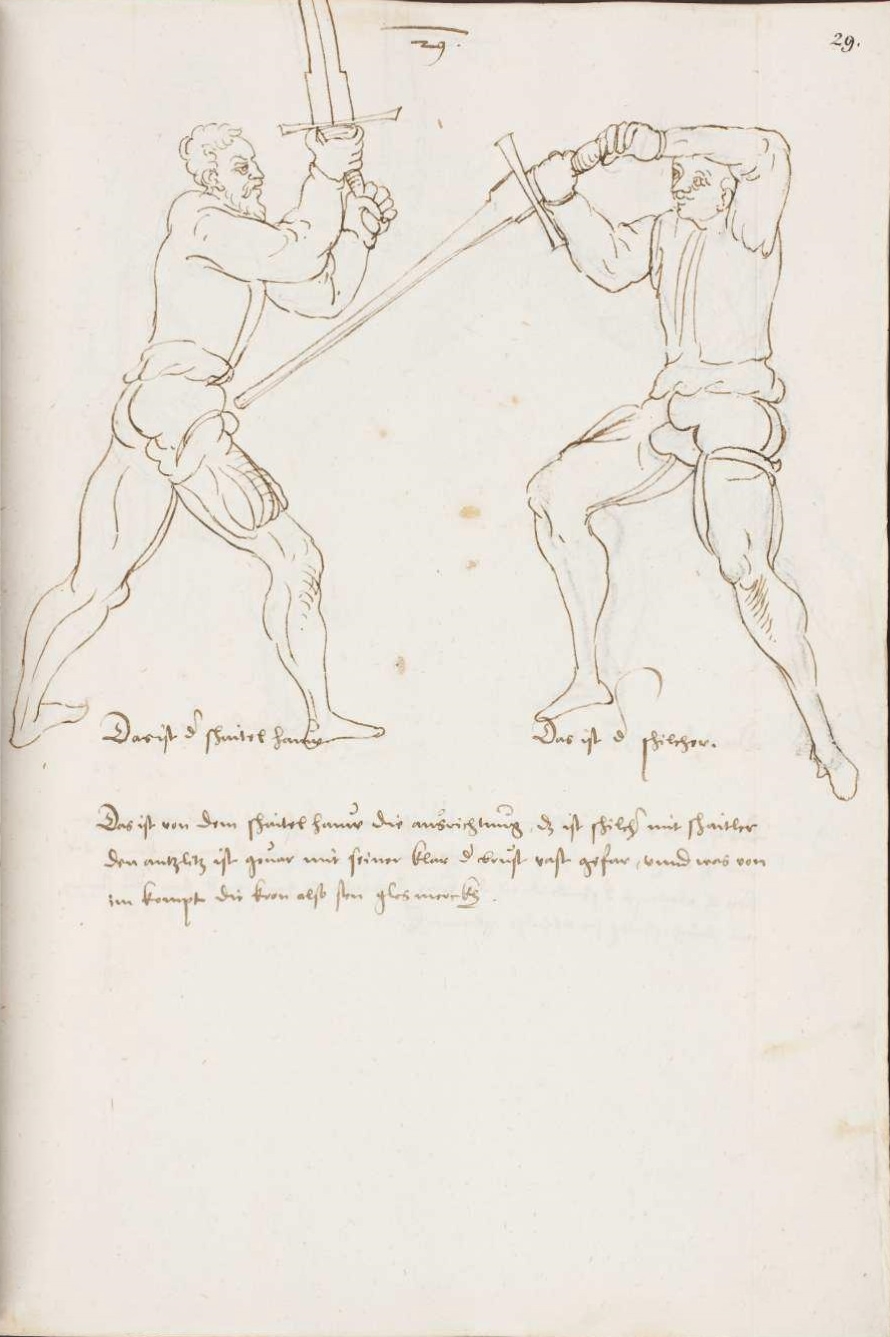 29.
29.
Das ist d' shaitel hauw
Das ist d' shilcher.
Das ist von dem shaitel hauw die ausrichtung, dz ist shilch' mit shaitler
den antzlitz ist gevar mit seiner klar d' brust vast gefar, vnnd was von
im kompt die kron also